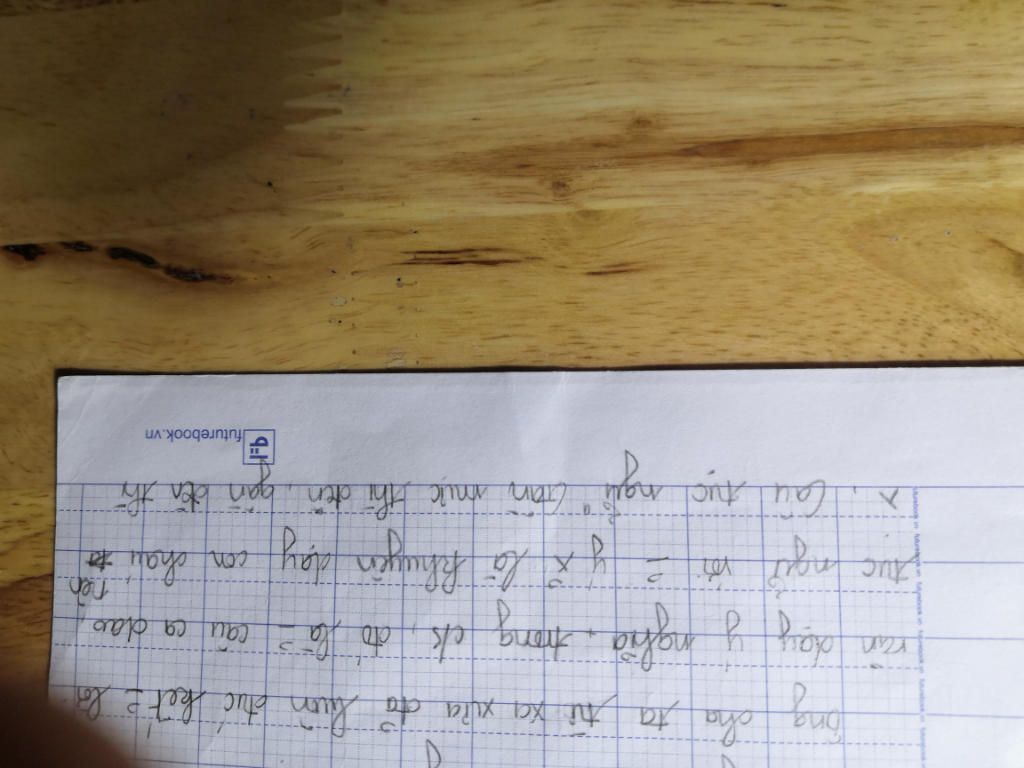 ông cha ta từ xa xưa đã luôn đúc kết = lời
răn dạy ý nghĩa, trong c/s, đó là = câu ca dao,
nên
tục ngữ với = ý x là khuyên dạy con cháu
x. Câu tục ngữ "Gần mực thì đen, gần đèn thì
fb futurebook.vn